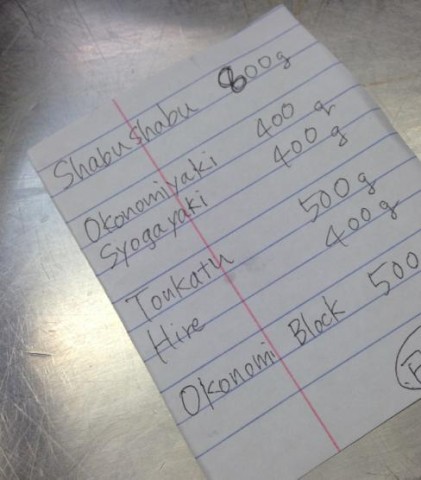 Shabushabu 800g
Okonomiyaki 400 g
Syogayaki 400 g
Tonkatu 500g
Hire 400g
Okonomi Block 500